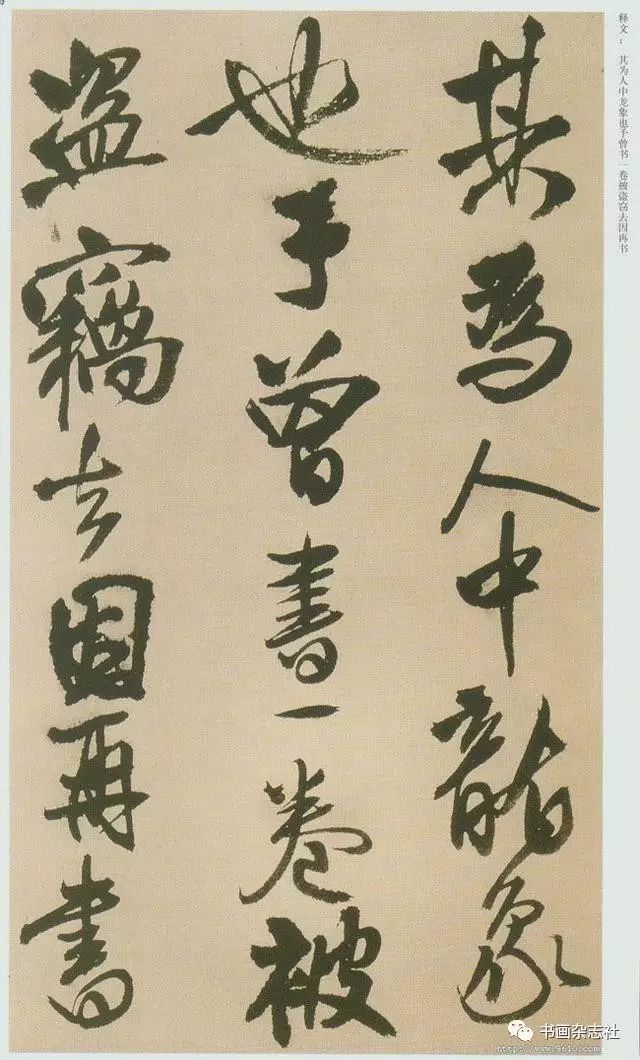 释文： 其为人中龙象也予曾书一卷被盗窃去因再书
其爲人中龍象
也予曾書一卷被
盜竊去因再書
书画杂志社
http://www.9610.com